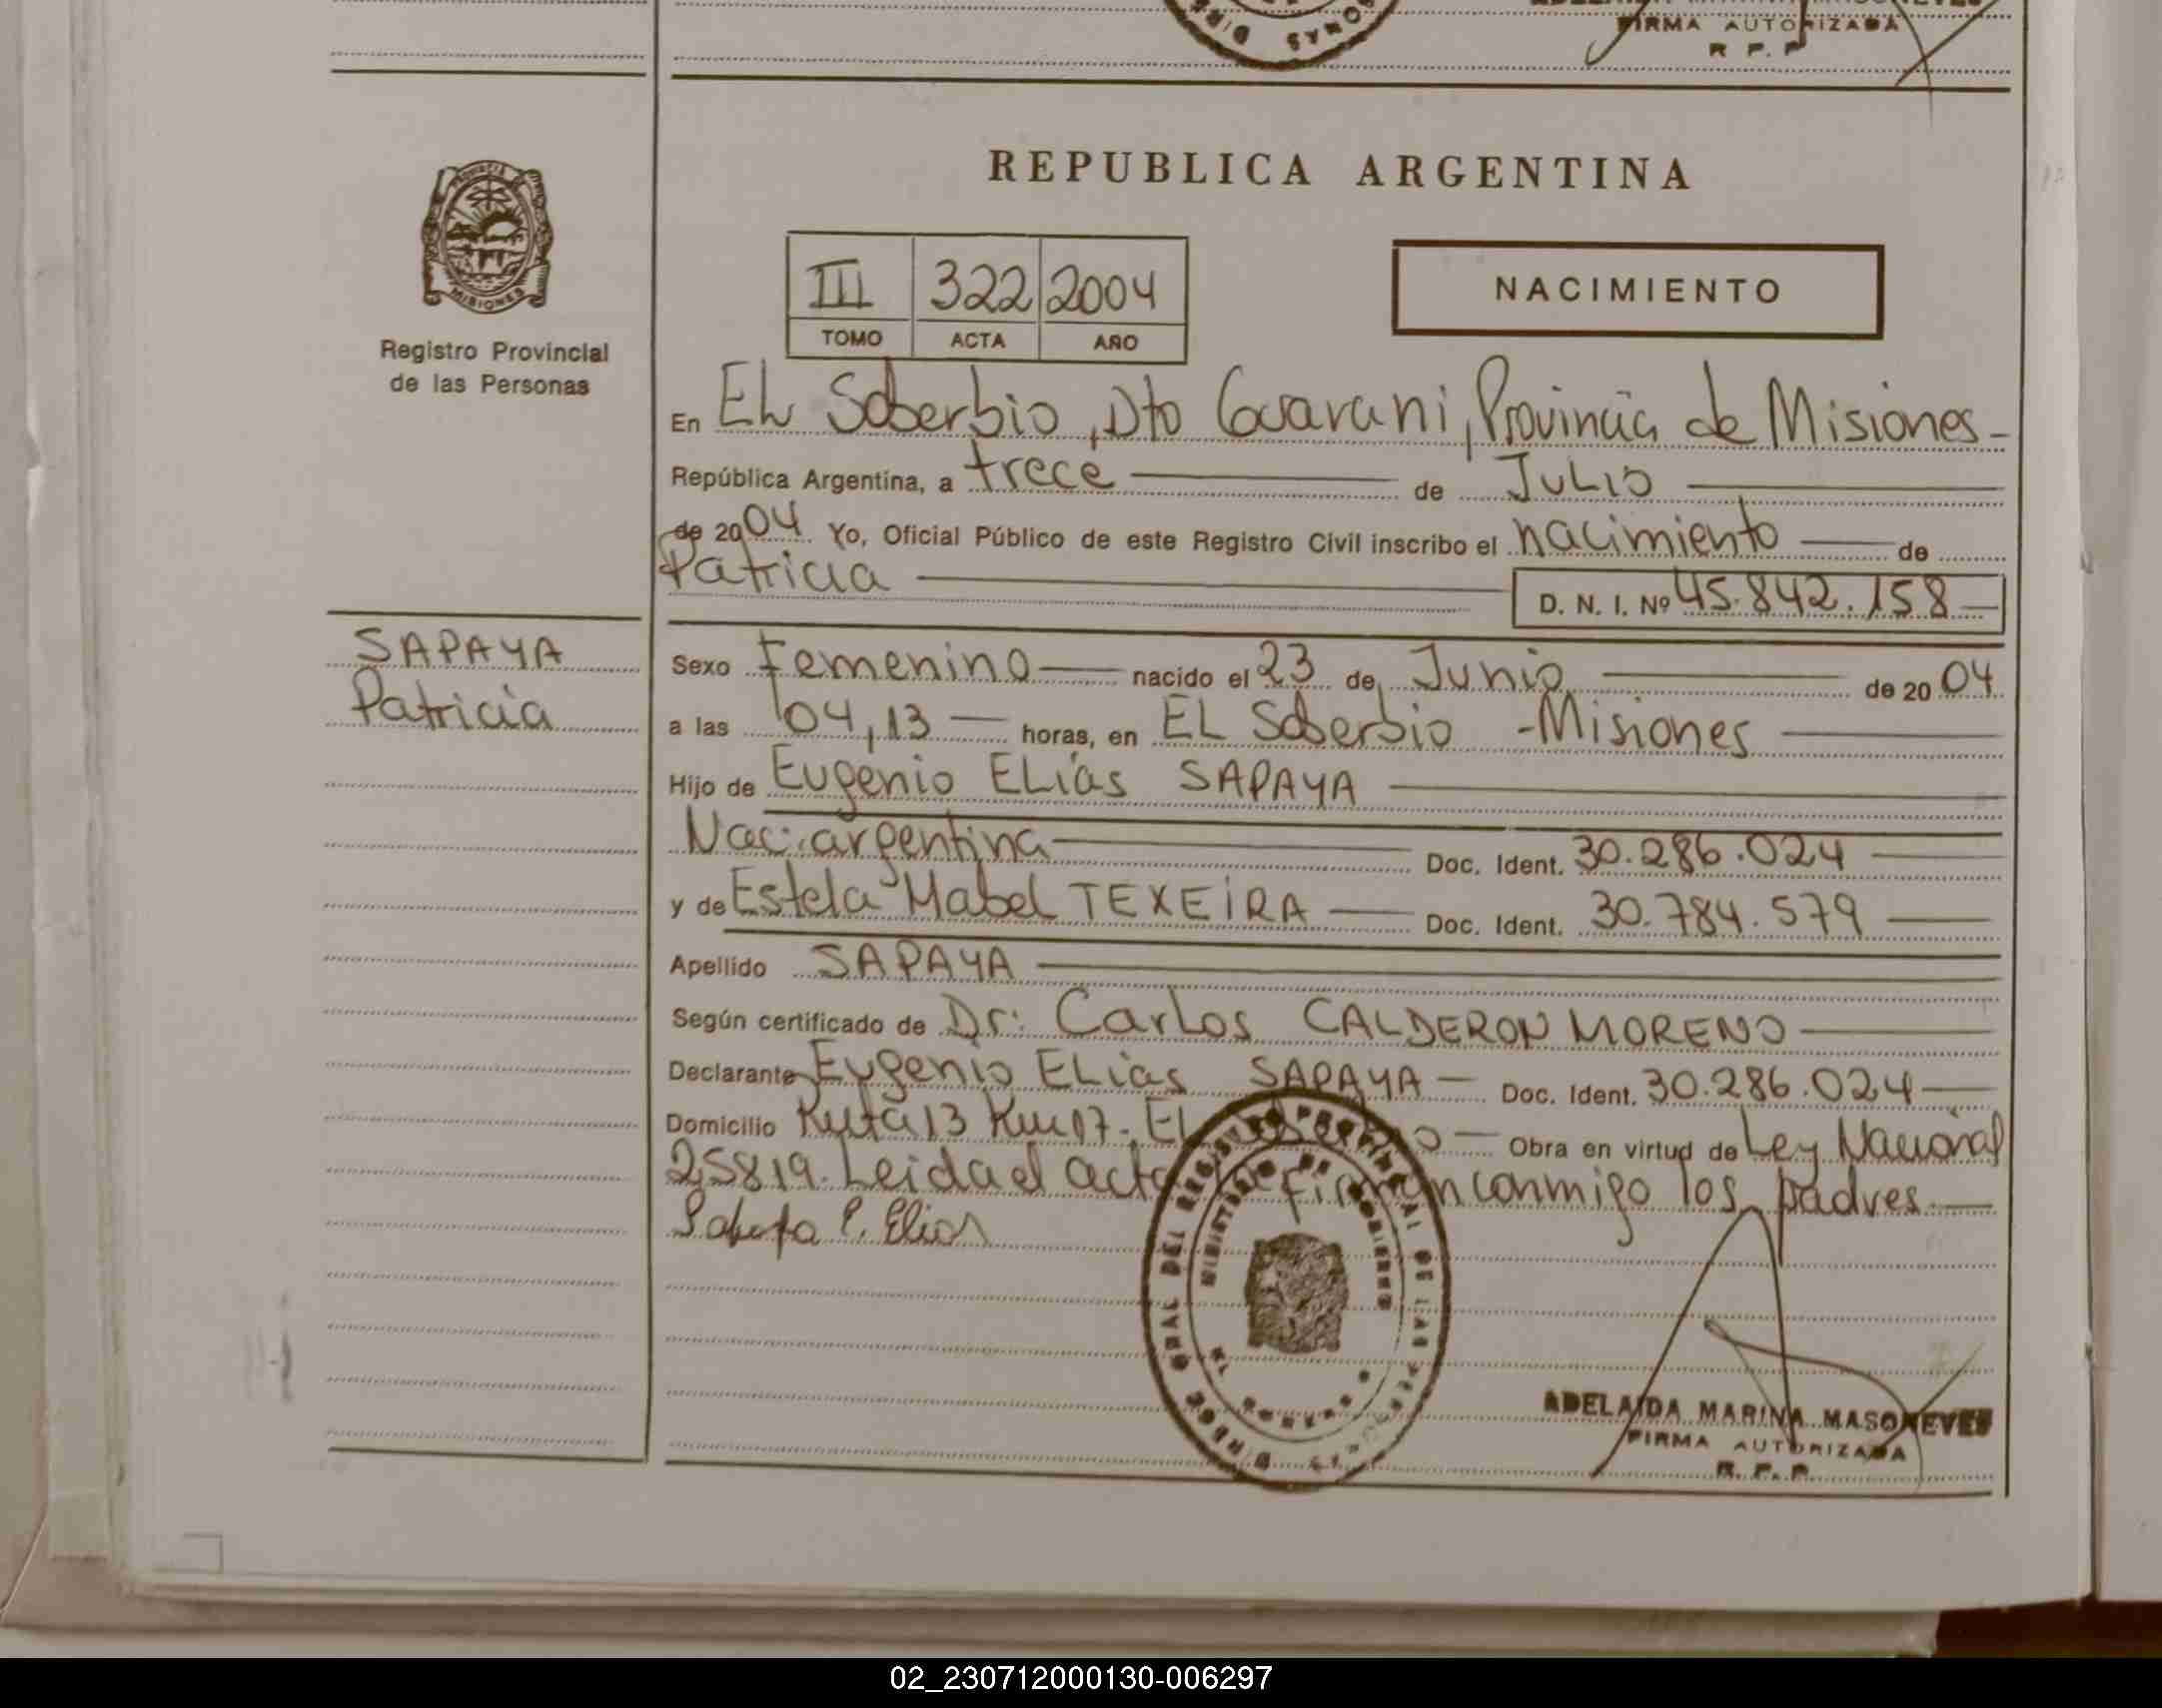 FIRMA AUTORIZADA
R. P. P
REPUBLICA ARGENTINA
PROVINCIA DE
MISIONES
Registro Provincial
de las Personas
III 322 2004
TOMO ACTA AÑO
NACIMIENTO
En EL Soberbio, Dto Guarani, Provincia de Misiones-
República Argentina, a trece de JuLio
de 2004 Yo, Oficial Público de este Registro Civil inscribo el nacimiento de
Patricia
D. N. I. Nº 45.842.158
SAPAYA
Patricia
Sexo Femenino nacido el 23 de Junio de 2004
a las 04,13 horas, en EL Soberbio -Misiones
Hijo de Eugenio ELías SAPAYA
Nac: argentina Doc. Ident. 30.286.024
y de Estela Mabel TEXEIRA Doc. Ident. 30.784.579
Apellido SAPAYA
Según certificado de Dr: Carlos CALDERON MORENO
Declarante Eugenio ELias SAPAYA Doc. Ident. 30.286.024
Domicilio Ruta 13 Km 17-, EL Soberbio Obra en virtud de Ley Nacional
25819. Leida el acta firman conmigo los padres.
E. Elias
MINISTERIO DE GOBIERNO
ADELAIDA MARINA
FIRMA AUTORIZADA
R. P. P.
02_230712000130-006297